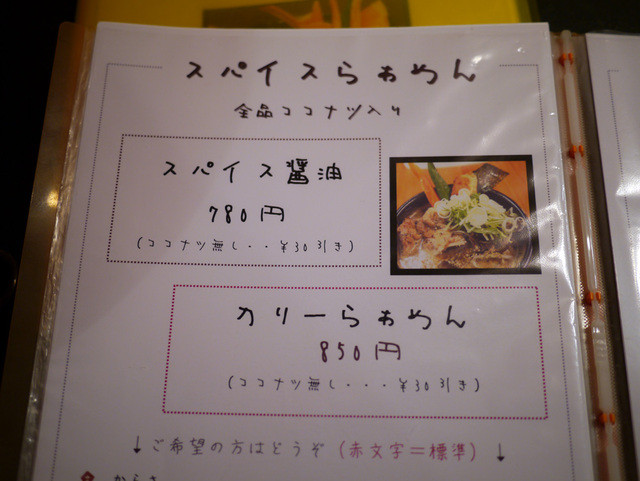 スパイスらぁめん
全品ココナツ入り
スパイス醤油
780円
(ココナツ無し・・¥30引き)
カリーらぁめん
850円
(ココナツ無し・・・¥30引き)
↓ご希望の方はどうぞ(赤文字=標準)↓
からさ